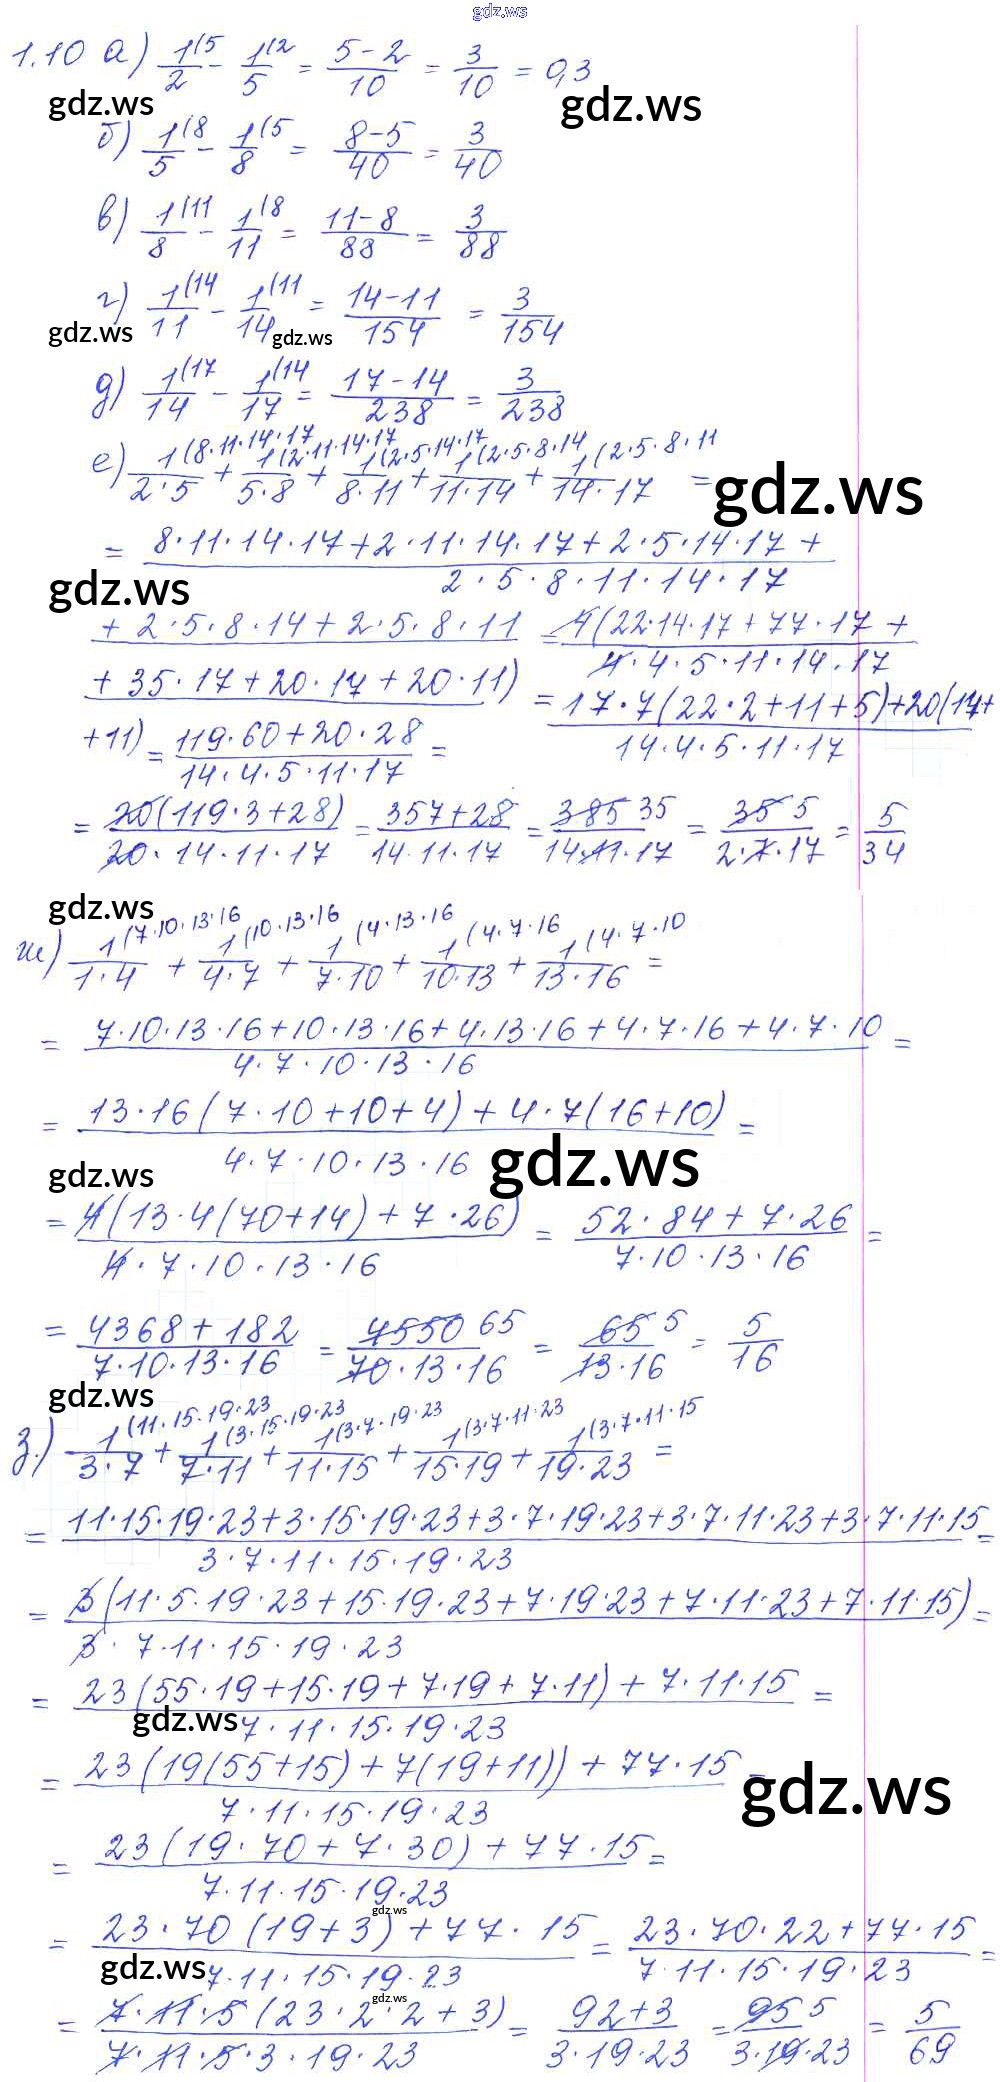 gdz.ws
1.10 а) 1(5/2 - 1(2/5 = (5-2)/10 = 3/10 = 0,3
gdz.ws gdz.ws
б) 1(8/5 - 1(5/8 = (8-5)/40 = 3/40
в) 1(11/8 - 1(8/11 = (11-8)/88 = 3/88
г) 1(14/11 - 1(11/14 = (14-11)/154 = 3/154
gdz.ws gdz.ws
д) 1(17/14 - 1(14/17 = (17-14)/238 = 3/238
е) 1(8·11·14·17/2·5 + 1(2·11·14·17/5·8 + 1(2·5·14·17/8·11 + 1(2·5·8·14/11·14 + 1(2·5·8·11/14·17 =
gdz.ws
= 8·11·14·17+2·11·14·17+2·5·14·17+ / 2·5·8·11·14·17
gdz.ws
+2·5·8·14+2·5·8·11 = 4(22·14·17+77·17+ / 4·4·5·11·14·17
+35·17+20·14+20·11) = 17·7(22·2+11+5)+20(17+ / 14·4·5·11·17
+11) = (119·60+20·28)/14·4·5·11·17 =
= 20(119·3+28)/20·14·11·17 = (357+28)/14·11·17 = 385 35/14·11·17 = 35 5/2·7·17 = 5/34
gdz.ws
ж) 1(7·10·13·16/1·4 + 1(10·13·16/4·7 + 1(4·13·16/7·10 + 1(4·7·16/10·13 + 1(4·7·10/13·16 =
= 7·10·13·16+10·13·16+4·13·16+4·7·16+4·7·10 / 4·7·10·13·16 =
= 13·16(7·10+10+4)+4·7(16+10) / 4·7·10·13·16 =
gdz.ws gdz.ws
= 4(13·4(70+14)+7·26) / 4·7·10·13·16 = 52·84+7·26 / 7·10·13·16 =
= 4368+182 / 7·10·13·16 = 4550 65 / 70·13·16 = 65 5 / 13·16 = 5/16
gdz.ws
з.) 1(11·15·19·23/3·7 + 1(3·15·19·23/7·11 + 1(3·7·19·23/11·15 + 1(3·7·11·23/15·19 + 1(3·7·11·15/19·23 =
= 11·15·19·23+3·15·19·23+3·7·19·23+3·7·11·23+3·7·11·15 / 3·7·11·15·19·23 =
= 3(11·5·19·23+15·19·23+7·19·23+7·11·23+7·11·15) / 3·7·11·15·19·23 =
= 23(55·19+15·19+7·19+7·11)+7·11·15 / 7·11·15·19·23 =
gdz.ws
= 23(19(55+15)+7(19+11))+77·15 / 7·11·15·19·23 =
gdz.ws
= 23(19·70+7·30)+77·15 / 7·11·15·19·23 =
gdz.ws
= 23·70(19+3)+77·15 / 7·11·15·19·23 = 23·70·22+77·15 / 7·11·15·19·23 =
gdz.ws
gdz.ws
= 7·11·5(23·2·2+3) / 7·11·5·3·19·23 = 92+3 / 3·19·23 = 95 5 / 3·19·23 = 5/69